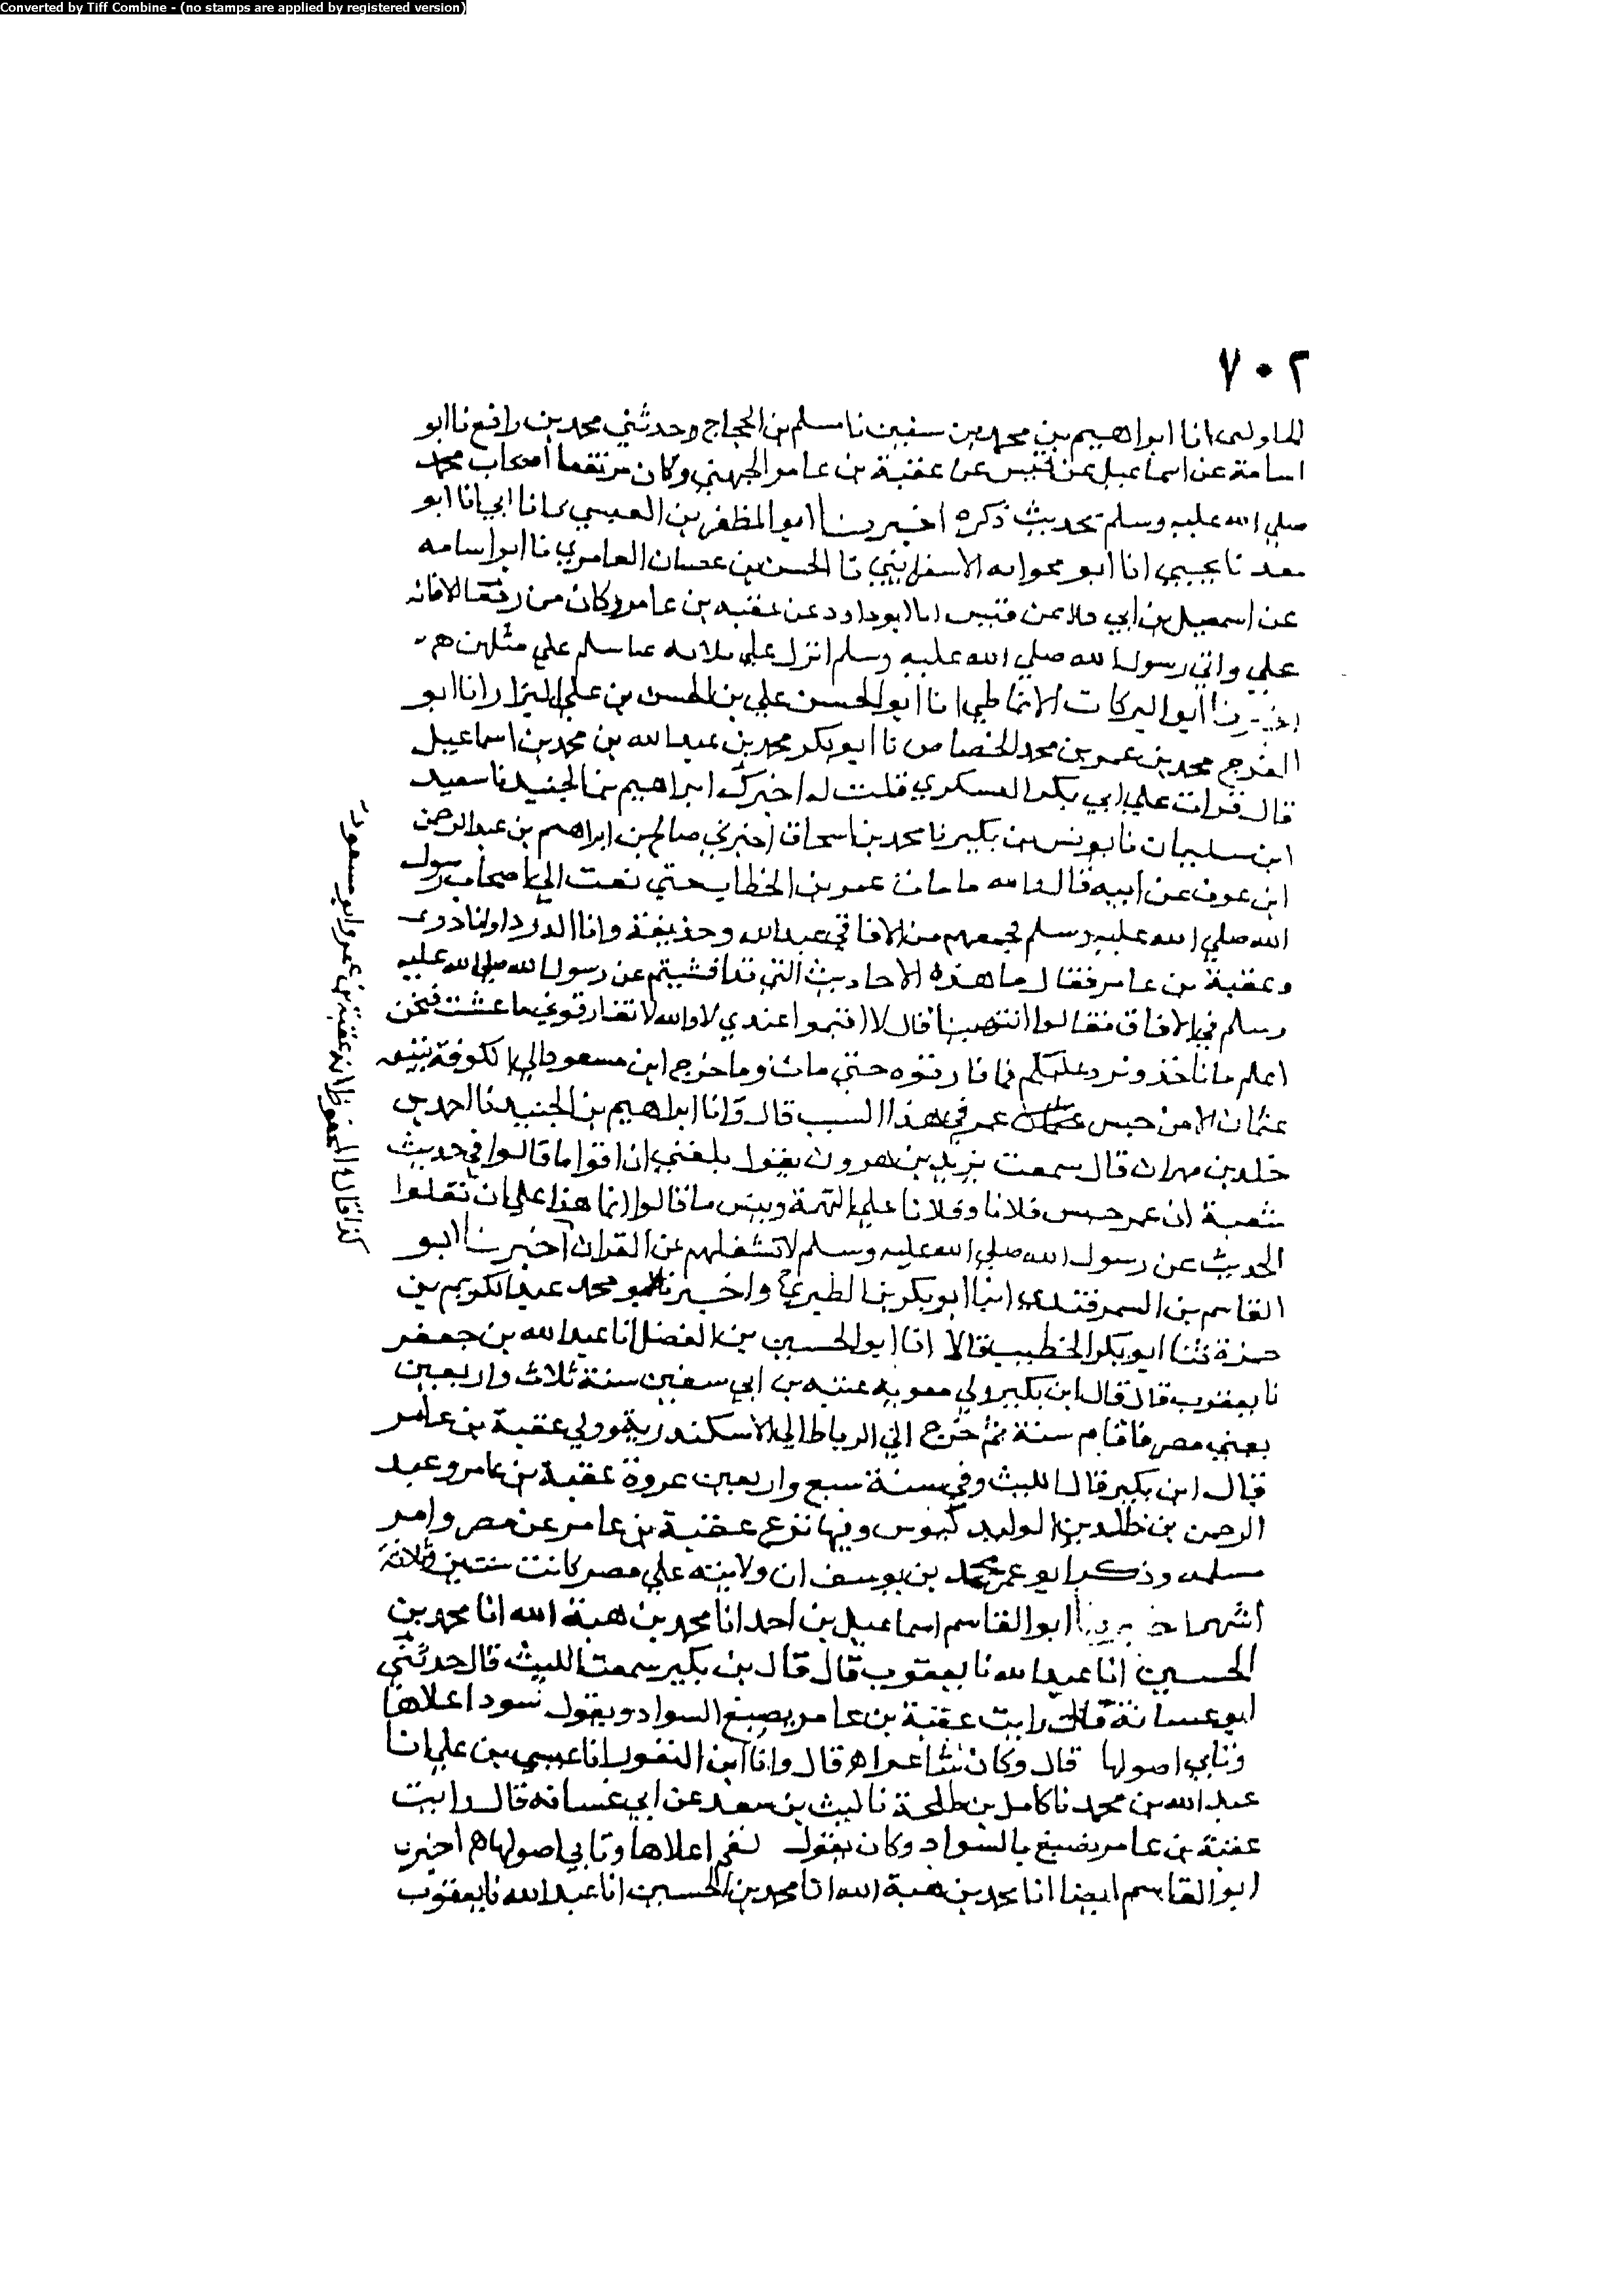 Converted by Tiff Combine - (no stamps are applied by registered version)
٧٠٢
انا ابراهيم بن محمد بن سفين نا مسلم بن الحجاج وحدثني محمد بن رافع نا ابو
اسامة عن اسماعيل عن قيس عن عقبة بن عامر الجهني وكان من رفعا اصحاب محمد
صلي الله عليه وسلم بحديث ذكره اخبرنا ابو المظفر بن انا ابي انا ابو
نا يحيي انا ابو عوانه الاسفرايني نا الحسن بن عفان العامري نا ابو اسامه
عن اسمعيل بن ابي عن قيس ابو داود عن عقبه بن عامر وكان من
علي واني رسول الله صلي الله عليه وسلم انزل علي علي مثلهن
اخبرنا ابو البركات الانماطي انا ابو الحسن علي بن الحسن بن علي البزار انا ابو
الفرج محمد بن عمر بن محمد الخصاص نا ابو بكر محمد بن عبد الله بن محمد بن اسماعيل
قال قرات علي ابي بكر العسكري قلت له اخبرك ابراهيم بن الجنيد نا سعيد
ابن سليمان نا يونس بن بكير نا محمد بن اسحاق اخبرني صالح بن ابراهيم بن عبد الرحمن
ابن عوف عن ابيه قال والله ما مات عمر بن الخطاب حتي بعث الي اصحاب رسول
الله صلي الله عليه وسلم فجمعهم من الافاق عبد الله وحذيفة وانا الدرداء وانا ذر
وعقبة بن عامر فقال ما هذه الاحاديث التي قد افشيتم عن رسول الله صلي الله عليه
وسلم في الافاق فقالوا اتنهينا قال لا اقيموا عندي لا والله لا تفارقوني ما عشت فنحن
اعلم ما ناخذ ونرد عليكم فما فارقوه حتي مات وما خرج ابن مسعود الي الكوفة ببيعه
عثمان الا من حبس عمر في هذا السبب قال وانا ابراهيم بن الجنيد نا احمد بن
خلد بن مهران قال سمعت يزيد بن هرون يقول بلغني ان اقواما قالوا في حديث
شعبة ان عمر حبس فلانا وفلانا علي التهمة وبيس ما قالوا انما هذا علي ان تقلوا
الحديث عن رسول الله صلي الله عليه وسلم لا تشغلهم عن القران اخبرنا ابو
القاسم بن السمرقندي انبا ابو بكر بن الطبري واخبرنا ابو محمد عبد الكريم بن
حمزة ثنا ابو بكر الخطيب قالا انا ابو الحسين بن الفضل انا عبد الله بن جعفر
نا يعقوب قال قال ابن بكير ولي معويه عتبه بن ابي سفين سنة ثلاث واربعين
يعني مصر فاقام سنة ثم خرج الي الرباط الي الاسكندرية وولي عقبة بن عامر
قال ابن بكير قال الليث وفي سنة سبع واربعين غزوة عقبة بن عامر وعبد
الرحمن بن خلد بن الوليد وفيها نزع عقبة بن عامر عن مصر وامر
مسلمه وذكر ابو عمر محمد بن يوسف ان ولايته علي مصر كانت سنتين وثلاثة
اشهر اخبرنا ابو القاسم اسماعيل بن احمد انا محمد بن هبة الله انا محمد بن
الحسين انا عبد الله نا يعقوب قال قال بن بكير سمعت الليث قال حدثني
ابو عسانة قال رايت عقبة بن عامر يصبغ السواد ويقول نسود اعلاها
وتابي اصولها قال وكان شاعرا ه قال وانا ابن النقور انا عيسي بن علي انا
عبد الله بن محمد نا كامل بن طلحة نا ليث بن سعد عن ابي عسانه قال رايت
عقبة بن عامر يصبغ بالسواد وكان يقول نغير اعلاها وتابي اصولها ه اخبرنا
ابو القاسم ايضا انا محمد بن هبة الله انا محمد بن الحسين انا عبد الله نا يعقوب
كذا قال والمحفوظ انه عقبة بن عمرو ابو مسعود